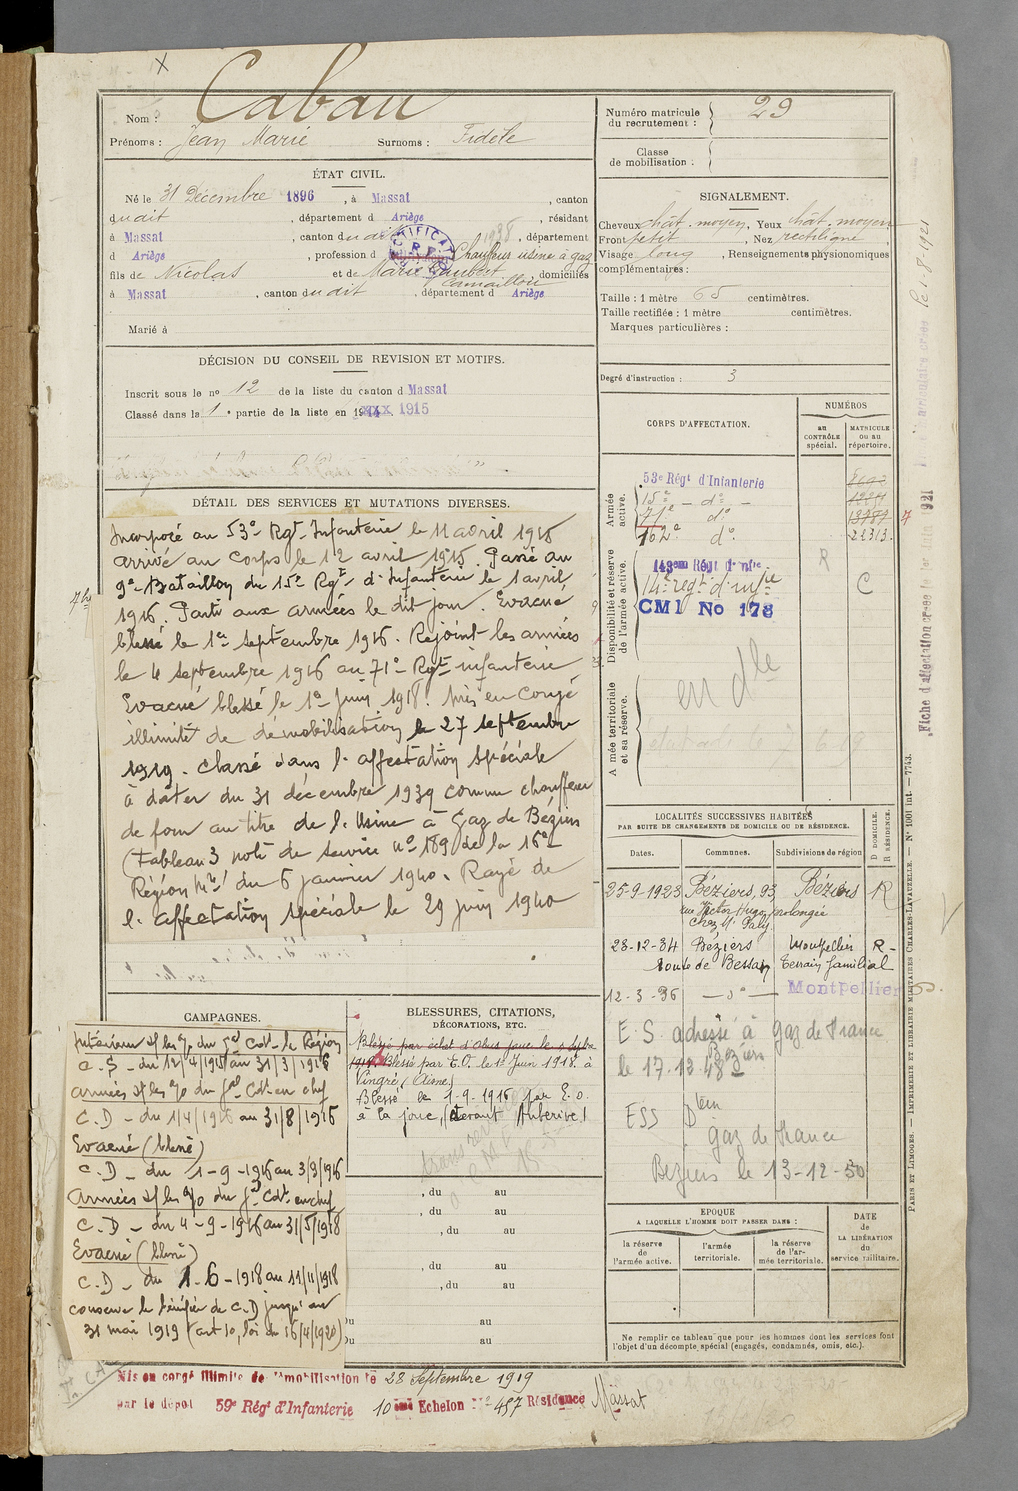 Nom : Cabau
Prénoms : Jean Marie Surnoms : Fidèle
Numéro matricule du recrutement : 29
Classe de mobilisation :
ÉTAT CIVIL.
Né le 31 Décembre 1896, à Massat, canton
dudit, département d Ariège, résidant
à Massat, canton dudit, département
d Ariège, profession d Chauffeur usine à gaz
fils de Nicolas et de Marie Jaubert, domiciliés
Camaillou
à Massat, canton dudit, département d Ariège
Marié à
DÉCISION DU CONSEIL DE REVISION ET MOTIFS.
Inscrit sous le no 12 de la liste du canton d Massat
Classé dans la 1e partie de la liste en 1915
SIGNALEMENT.
Cheveux chât. moyen, Yeux chât. moyen
Front petit, Nez rectiligne,
Visage long, Renseignements physionomiques
complémentaires :
Taille : 1 mètre 65 centimètres.
Taille rectifiée : 1 mètre centimètres.
Marques particulières :
Degré d'instruction : 3
DÉTAIL DES SERVICES ET MUTATIONS DIVERSES.
Incorporé au 53e Rgt Infanterie le 11 avril 1915
arrivé au corps le 12 avril 1915. Passé au
9e Bataillon du 15e Rgt d'Infanterie le 1 avril
1916. Parti aux armées le dit jour. Evacué
blessé le 1er septembre 1916. Rejoint les armées
le 4 septembre 1916 au 71e Rgt infanterie
Evacué blessé le 1er Juin 1918. Mis en Congé
illimité de démobilisation le 27 septembre
1919. Classé dans l'affectation spéciale
à dater du 31 décembre 1939 comme chauffeur
de four au titre de l'Usine à Gaz de Béziers
(Tableau 3 note de service no 189 de la 16e
Région Mre du 6 janvier 1940. Rayé de
l'affectation spéciale le 29 juin 1940
CORPS D'AFFECTATION.
NUMÉROS
au CONTRÔLE spécial.
MATRICULE ou au répertoire.
Armée active.
53e Régt d'Infanterie
15e - do - 1224
71e do 13777
162e do 22313
Disponibilité et réserve de l'armée active.
143eme Régt d'Infie R
14e régt d'infie C
CMI No 178
Armée territoriale et sa réserve.
en dle
LOCALITÉS SUCCESSIVES HABITÉES
PAR SUITE DE CHANGEMENTS DE DOMICILE OU DE RÉSIDENCE.
Dates. Communes. Subdivisions de région D DOMICILE. R RÉSIDENCE.
25-9-1923 Béziers, 93, Béziers R
rue Victor Hugo prolongée
chez Mr Paly
28-12-34 Béziers Montpellier R-
route de Bessan Terrain familial
12-3-36 — do — Montpellier
E.S. adressé à Gaz de France
Béziers
le 17.12.48
ESS Dtem
gaz de France
Beziers le 13-12-50
EPOQUE
A LAQUELLE L'HOMME DOIT PASSER DANS :
la réserve de l'armée active.
l'armée territoriale.
la réserve de l'armée territoriale.
DATE de LA LIBÉRATION du service militaire.
Ne remplir ce tableau que pour les hommes dont les services font
l'objet d'un décompte spécial (engagés, condamnés, omis, etc.).
CAMPAGNES.
Intérieur s/ les o/o du Gal Cdt la Région
C.S - du 12/4/1915 au 31/3/1916
Armées s/ les o/o du Gal Cdt en chef
C.D - du 1/4/1916 au 31/8/1916
Evacué (blessé)
C.D - du 1-9-1916 au 3/9/1916
Armées s/ les o/o du Gal Cdt en chef
C.D - du 4-9-1916 au 31/5/1918
Evacué (blessé)
C.D - du 1-6-1918 au 11/11/1918
conserve le bénéfice de C.D jusqu'au
31 mai 1919 (art 10, loi du 16/4/1920)
BLESSURES, CITATIONS,
DÉCORATIONS, ETC.
Blessé par éclat d'obus joue le 1 Septbre
1917. Blessé par E.O. le 1er Juin 1918 à
Vingré (Aisne)
Blessé le 1-9-1916 par E.O.
à la joue, (devant Auberive)
, du au
, du au
, du au
, du au
, du au
du au
du au
Mis en congé illimité de démobilisation le 28 Septembre 1919
par le dépôt 59e Régt d'Infanterie 10eme Echelon No 457 Résidence Massat
Fiche d'affectation créée le 1er 1921
le 1.8.1921
PARIS ET LIMOGES. — IMPRIMERIE ET LIBRAIRIE MILITAIRES CHARLES-LAVAUZELLE. — No 1001 Int. — 7743.